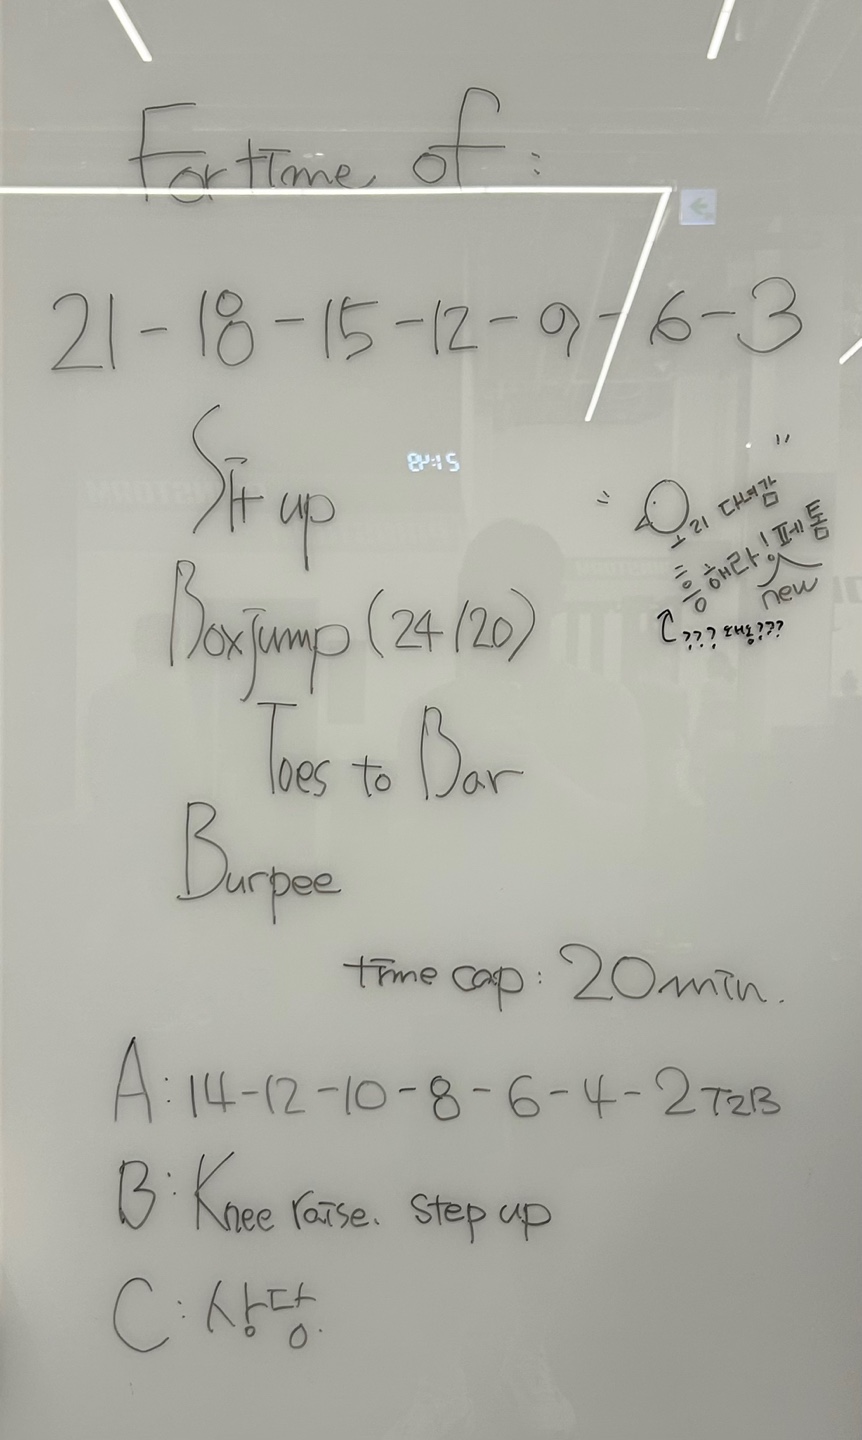 For time of :
21-18-15-12-9-6-3
Sit up
Box jump (24/20)
Toes to Bar
Burpee
오리 다녀감
흥해라! 페톰
new
???
time cap: 20min.
A: 14-12-10-8-6-4-2 T2B
B: Knee raise. step up
C: 상당.